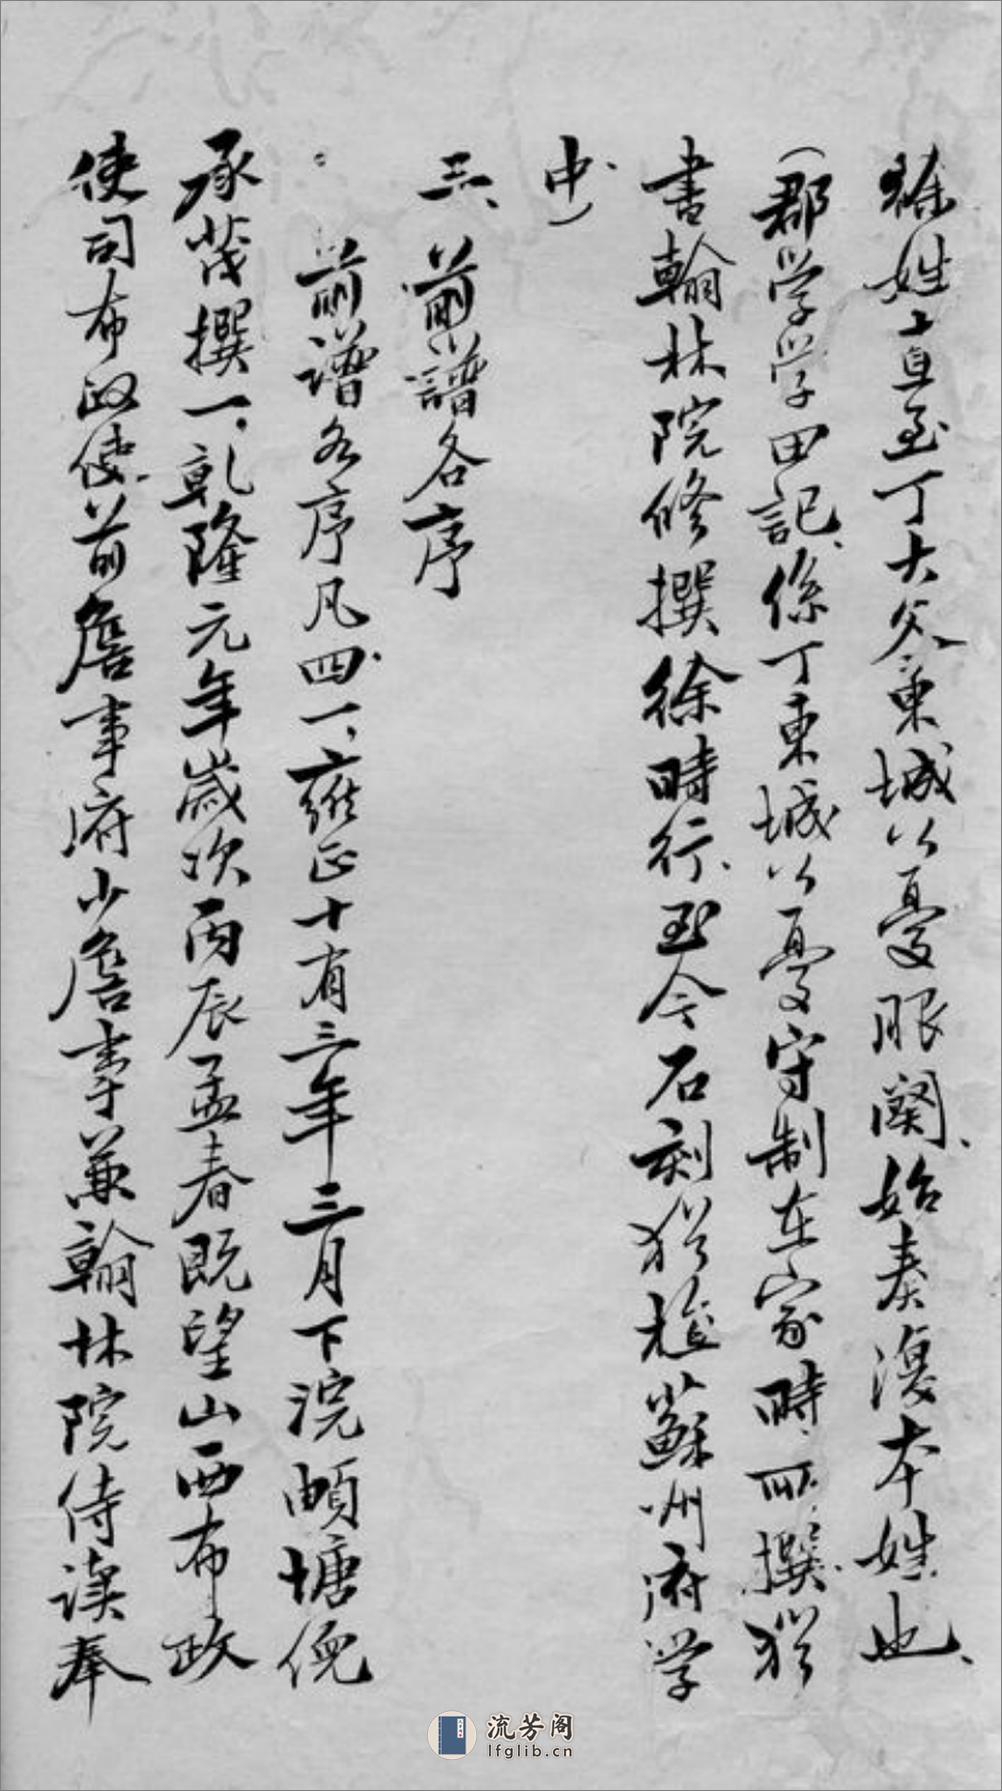 徐姓 直至丁大父東城以憂服闋、始奏復本姓也、
(郡学学田記、係丁東城以憂守制在家時所撰、猶
書翰林院修撰徐時行、至今石刻猶植蘇州府学
中)
三、前譜各序
前譜各序凡四、一、雍正十有三年三月下浣頔塘倪
承茂撰一、乾隆元年歲次丙辰孟春既望山西布政
使司布政使前詹事府少詹事兼翰林院侍讀奉
流芳阁
lfglib.cn